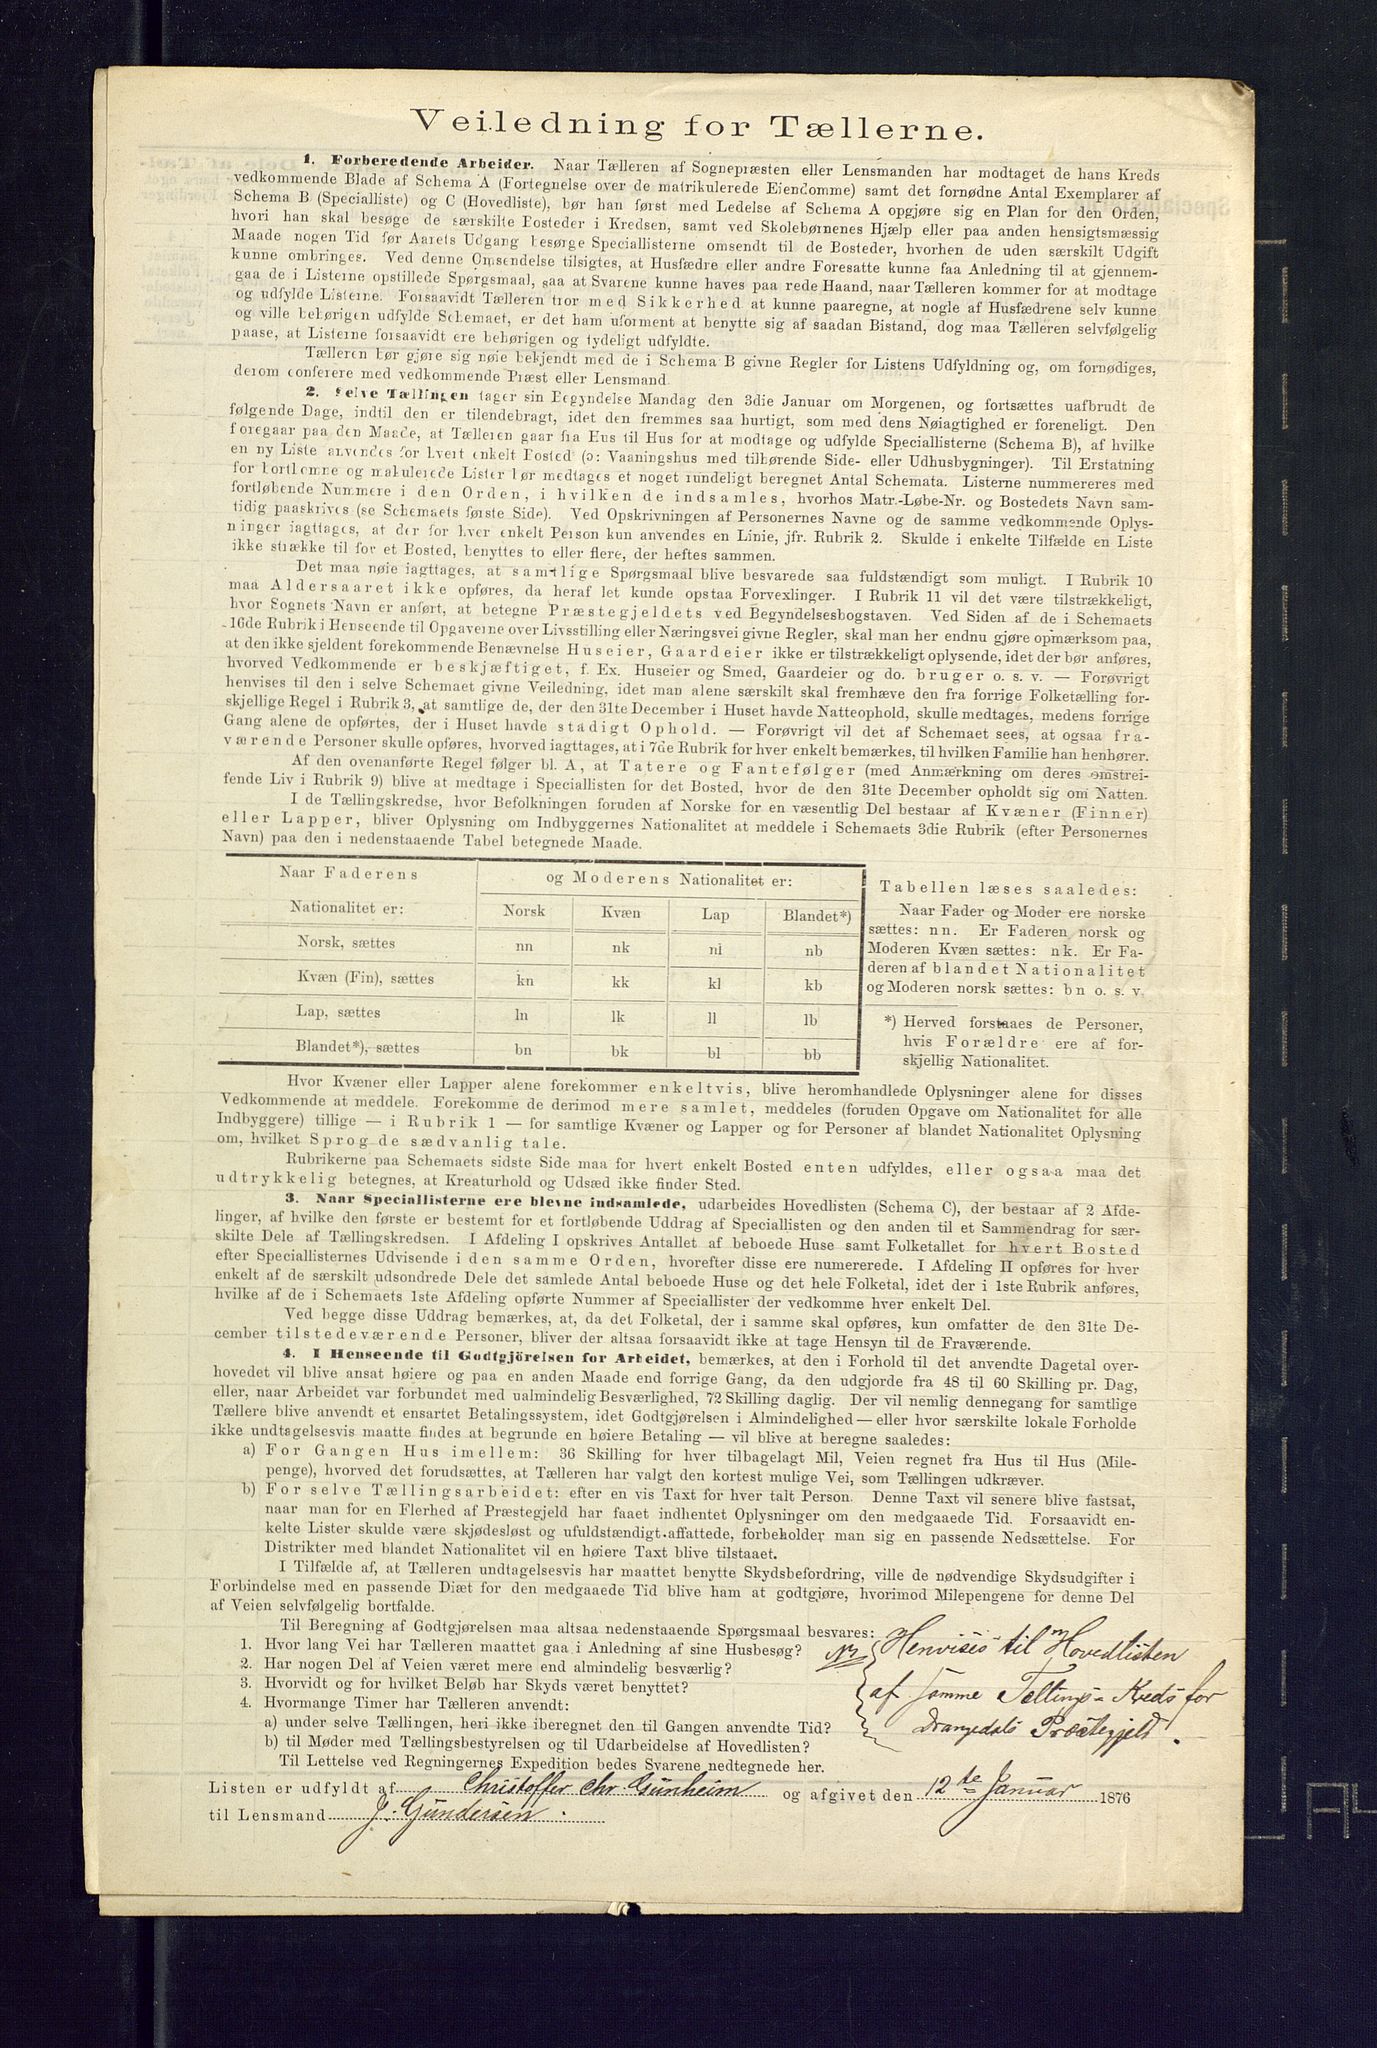 Veiledning for Tællerne.
1. Forberedende Arbeider. Naar Tælleren af Sognepræsten eller Lensmanden har modtaget de hans Kreds
vedkommende Blade af Schema A (Fortegnelse over de matrikulerede Eiendomme) samt det fornødne Antal Exemplarer af
Schema B (Specialliste) og C (Hovedliste), bør han først med Ledelse af Schema A opgjøre sig en Plan for den Orden,
hvori han skal besøge de særskilte Bosteder i Kredsen, samt ved Skolebørnenes Hjælp eller paa anden hensigtsmæssig
Maade nogen Tid før Aarets Udgang besørge Speciallisterne omsendt til de Bosteder, hvorhen de uden særskilt Udgift
kunne ombringes. Ved denne Omsendelse tilsigtes, at Husfædre eller andre Foresatte kunne faa Anledning til at gjennem-
gaa de i Listerne opstillede Spørgsmaal, saa at Svarene kunne haves paa rede Haand, naar Tælleren kommer for at modtage
og udfylde Listerne. Forsaavidt Tælleren tror med Sikkerhed at kunne paaregne, at nogle af Husfædrene selv kunne
og ville behørigen udfylde Schemaet, er det ham uforment at benytte sig af saadan Bistand, dog maa Tælleren selvfølgelig
paase, at Listerne forsaavidt ere behørigen og tydeligt udfyldte.
Tælleren bør gjøre sig nøie bekjendt med de i Schema B givne Regler for Listens Udfyldning og, om fornødiges,
derom conferere med vedkommende Præst eller Lensmand.
2. Selve Tællingen tager sin Begyndelse Mandag den 3die Januar om Morgenen, og fortsættes uafbrudt de
følgende Dage, indtil den er tilendebragt, idet den fremmes saa hurtigt, som med dens Nøiagtighed er foreneligt. Den
foregaar paa den Maade, at Tælleren gaar fra Hus til Hus for at modtage og udfylde Speciallisterne (Schema B), af hvilke
en ny Liste anvendes for hvert enkelt Bosted (ɔ: Vaaningshus med tilhørende Side- eller Udhusbygninger). Til Erstatning
for bortkomne og makulerede Lister bør medtages et noget rundeligt beregnet Antal Schemata. Listerne nummereres med
fortløbende Nummere i den Orden, i hvilken de indsamles, hvorhos Matr.-Løbe-Nr. og Bostedets Navn sam-
tidig paaskrives (se Schemaets første Side). Ved Opskrivningen af Personernes Navne og de samme vedkommende Oplys-
ninger iagttages, at der for hver enkelt Person kun anvendes en Linie, jfr. Rubrik 2. Skulde i enkelte Tilfælde en Liste
ikke strække til for et Bosted, benyttes to eller flere, der heftes sammen.
Det maa nøie iagttages, at samtlige Spørgsmaal blive besvarede saa fuldstændigt som muligt. I Rubrik 10
maa Aldersaaret ikke opføres, da heraf let kunde opstaa Forvexlinger. I Rubrik 11 vil det være tilstrækkeligt,
hvor Sognets Navn er anført, at betegne Præstegjeldets ved Begyndelsesbogstaven. Ved Siden af de i Schemaets
16de Rubrik i Henseende til Opgaverne over Livsstilling eller Næringsvei givne Regler, skal man her endnu gjøre opmærksom paa,
at den ikke sjeldent forekommende Benævnelse Huseier, Gaardeier ikke er tilstrækkeligt oplysende, idet der bør anføres,
hvorved Vedkommende er beskjæftiget, f. Ex. Huseier og Smed, Gaardeier og do. bruger o. s. v. — Forøvrigt
henvises til den i selve Schemaet givne Veiledning, idet man alene særskilt skal fremhæve den fra forrige Folketælling for-
skjellige Regel i Rubrik 3, at samtlige de, der den 31te December i Huset havde Natteophold, skulle medtages, medens forrige
Gang alene de opførtes, der i Huset havde stadigt Ophold. — Forøvrigt vil det af Schemaet sees, at ogsaa fra-
værende Personer skulle opføres, hvorved iagttages, at i 7de Rubrik for hver enkelt bemærkes, til hvilken Familie han henhører.
Af den ovenanførte Regel følger bl. A, at Tatere og Fantefølger (med Anmærkning om deres omstrei-
fende Liv i Rubrik 9) blive at medtage i Speciallisten for det Bosted, hvor de den 31te December opholdt sig om Natten.
I de Tællingskredse, hvor Befolkningen foruden af Norske for en væsentlig Del bestaar af Kvæner (Finner)
eller Lapper, bliver Oplysning om Indbyggernes Nationalitet at meddele i Schemaets 3die Rubrik (efter Personernes
Navn) paa den i nedenstaaende Tabel betegnede Maade.
Naar Faderens og Moderens Nationalitet er:
Nationalitet er: Norsk Kvæn Lap Blandet*)
Norsk, sættes nn nk nl nb
Kvæn (Fin), sættes kn kk kl kb
Lap, sættes ln lk ll lb
Blandet*), sættes bn bk bl bb
Tabellen læses saaledes:
Naar Fader og Moder ere norske
sættes: nn. Er Faderen norsk og
Moderen Kvæn sættes: nk. Er Fa-
deren af blandet Nationalitet
og Moderen norsk sættes: bn o. s. v.
*) Herved forstaaes de Personer,
hvis Forældre ere af for-
skjellig Nationalitet.
Hvor Kvæner eller Lapper alene forekommer enkeltvis, blive heromhandlede Oplysninger alene for disses
Vedkommende at meddele. Forekomme de derimod mere samlet, meddeles (foruden Opgave om Nationalitet for alle
Indbyggere) tillige — i Rubrik 1 — for samtlige Kvæner og Lapper og for Personer af blandet Nationalitet Oplysning
om, hvilket Sprog de sædvanlig tale.
Rubrikerne paa Schemaets sidste Side maa for hvert enkelt Bosted enten udfyldes, eller ogsaa maa det
udtrykkelig betegnes, at Kreaturhold og Udsæd ikke finder Sted.
3. Naar Speciallisterne ere blevne indsamlede, udarbeides Hovedlisten (Schema C), der bestaar af 2 Afde-
linger, af hvilke den første er bestemt for et fortløbende Uddrag af Speciallisten og den anden til et Sammendrag for sær-
skilte Dele af Tællingskredsen. I Afdeling I opskrives Antallet af beboede Huse samt Folketallet for hvert Bosted
efter Speciallisternes Udvisende i den samme Orden, hvorefter disse ere numererede. I Afdeling II opføres for hver
enkelt af de særskilt udsondrede Dele det samlede Antal beboede Huse og det hele Folketal, idet der i 1ste Rubrik anføres,
hvilke af de i Schemaets 1ste Afdeling opførte Nummer af Speciallister der vedkomme hver enkelt Del.
Ved begge disse Uddrag bemærkes, at, da det Folketal, der i samme skal opføres, kun omfatter de den 31te De-
cember tilstedeværende Personer, bliver der altsaa forsaavidt ikke at tage Hensyn til de Fraværende.
4. I Henseende til Godtgjörelsen for Arbeidet, bemærkes, at den i Forhold til det anvendte Dagetal over-
hovedet vil blive ansat høiere og paa en anden Maade end forrige Gang, da den udgjorde fra 48 til 60 Skilling pr. Dag,
eller, naar Arbeidet var forbundet med ualmindelig Besværlighed, 72 Skilling daglig. Der vil nemlig dennegang for samtlige
Tællere blive anvendt et ensartet Betalingssystem, idet Godtgjørelsen i Almindelighed — eller hvor særskilte lokale Forholde
ikke undtagelsesvis maatte findes at begrunde en høiere Betaling — vil blive at beregne saaledes:
a) For Gangen Hus imellem: 36 Skilling for hver tilbagelagt Mil, Veien regnet fra Hus til Hus (Mile-
penge), hvorved det forudsættes, at Tælleren har valgt den kortest mulige Vei, som Tællingen udkræver.
b) For selve Tællingsarbeidet: efter en vis Taxt for hver talt Person. Denne Taxt vil senere blive fastsat,
naar man for en Flerhed af Præstegjeld har faaet indhentet Oplysninger om den medgaaede Tid. Forsaavidt en-
kelte Lister skulde være skjødesløst og ufuldstændigt affattede, forbeholder man sig en passende Nedsættelse. For
Distrikter med blandet Nationalitet vil en høiere Taxt blive tilstaaet.
I Tilfælde af, at Tælleren undtagelsesvis har maattet benytte Skydsbefordring, ville de nødvendige Skydsudgifter i
Forbindelse med en passende Diæt for den medgaaede Tid blive ham at godtgjøre, hvorimod Milepengene for denne Del
af Veien selvfølgelig bortfalde.
Til Beregning af Godtgjørelsen maa altsaa nedenstaaende Spørgsmaal besvares:
1. Hvor lang Vei har Tælleren maattet gaa i Anledning af sine Husbesøg?
2. Har nogen Del af Veien været mere end almindelig besværlig?
3. Hvorvidt og for hvilket Beløb har Skyds været benyttet?
4. Hvormange Timer har Tælleren anvendt:
a) under selve Tællingen, heri ikke iberegnet den til Gangen anvendte Tid?
b) til Møder med Tællingsbestyrelsen og til Udarbeidelse af Hovedlisten?
Henvises til Hovedlisten
af samme Tellings-Kreds for
Drangedals Præstegjeld.
Til Lettelse ved Regningernes Expedition bedes Svarene nedtegnede her.
Listen er udfyldt af Christoffer Chr. Gunheim og afgivet den 12te Januar 1876
til Lensmand J. Gundersen.